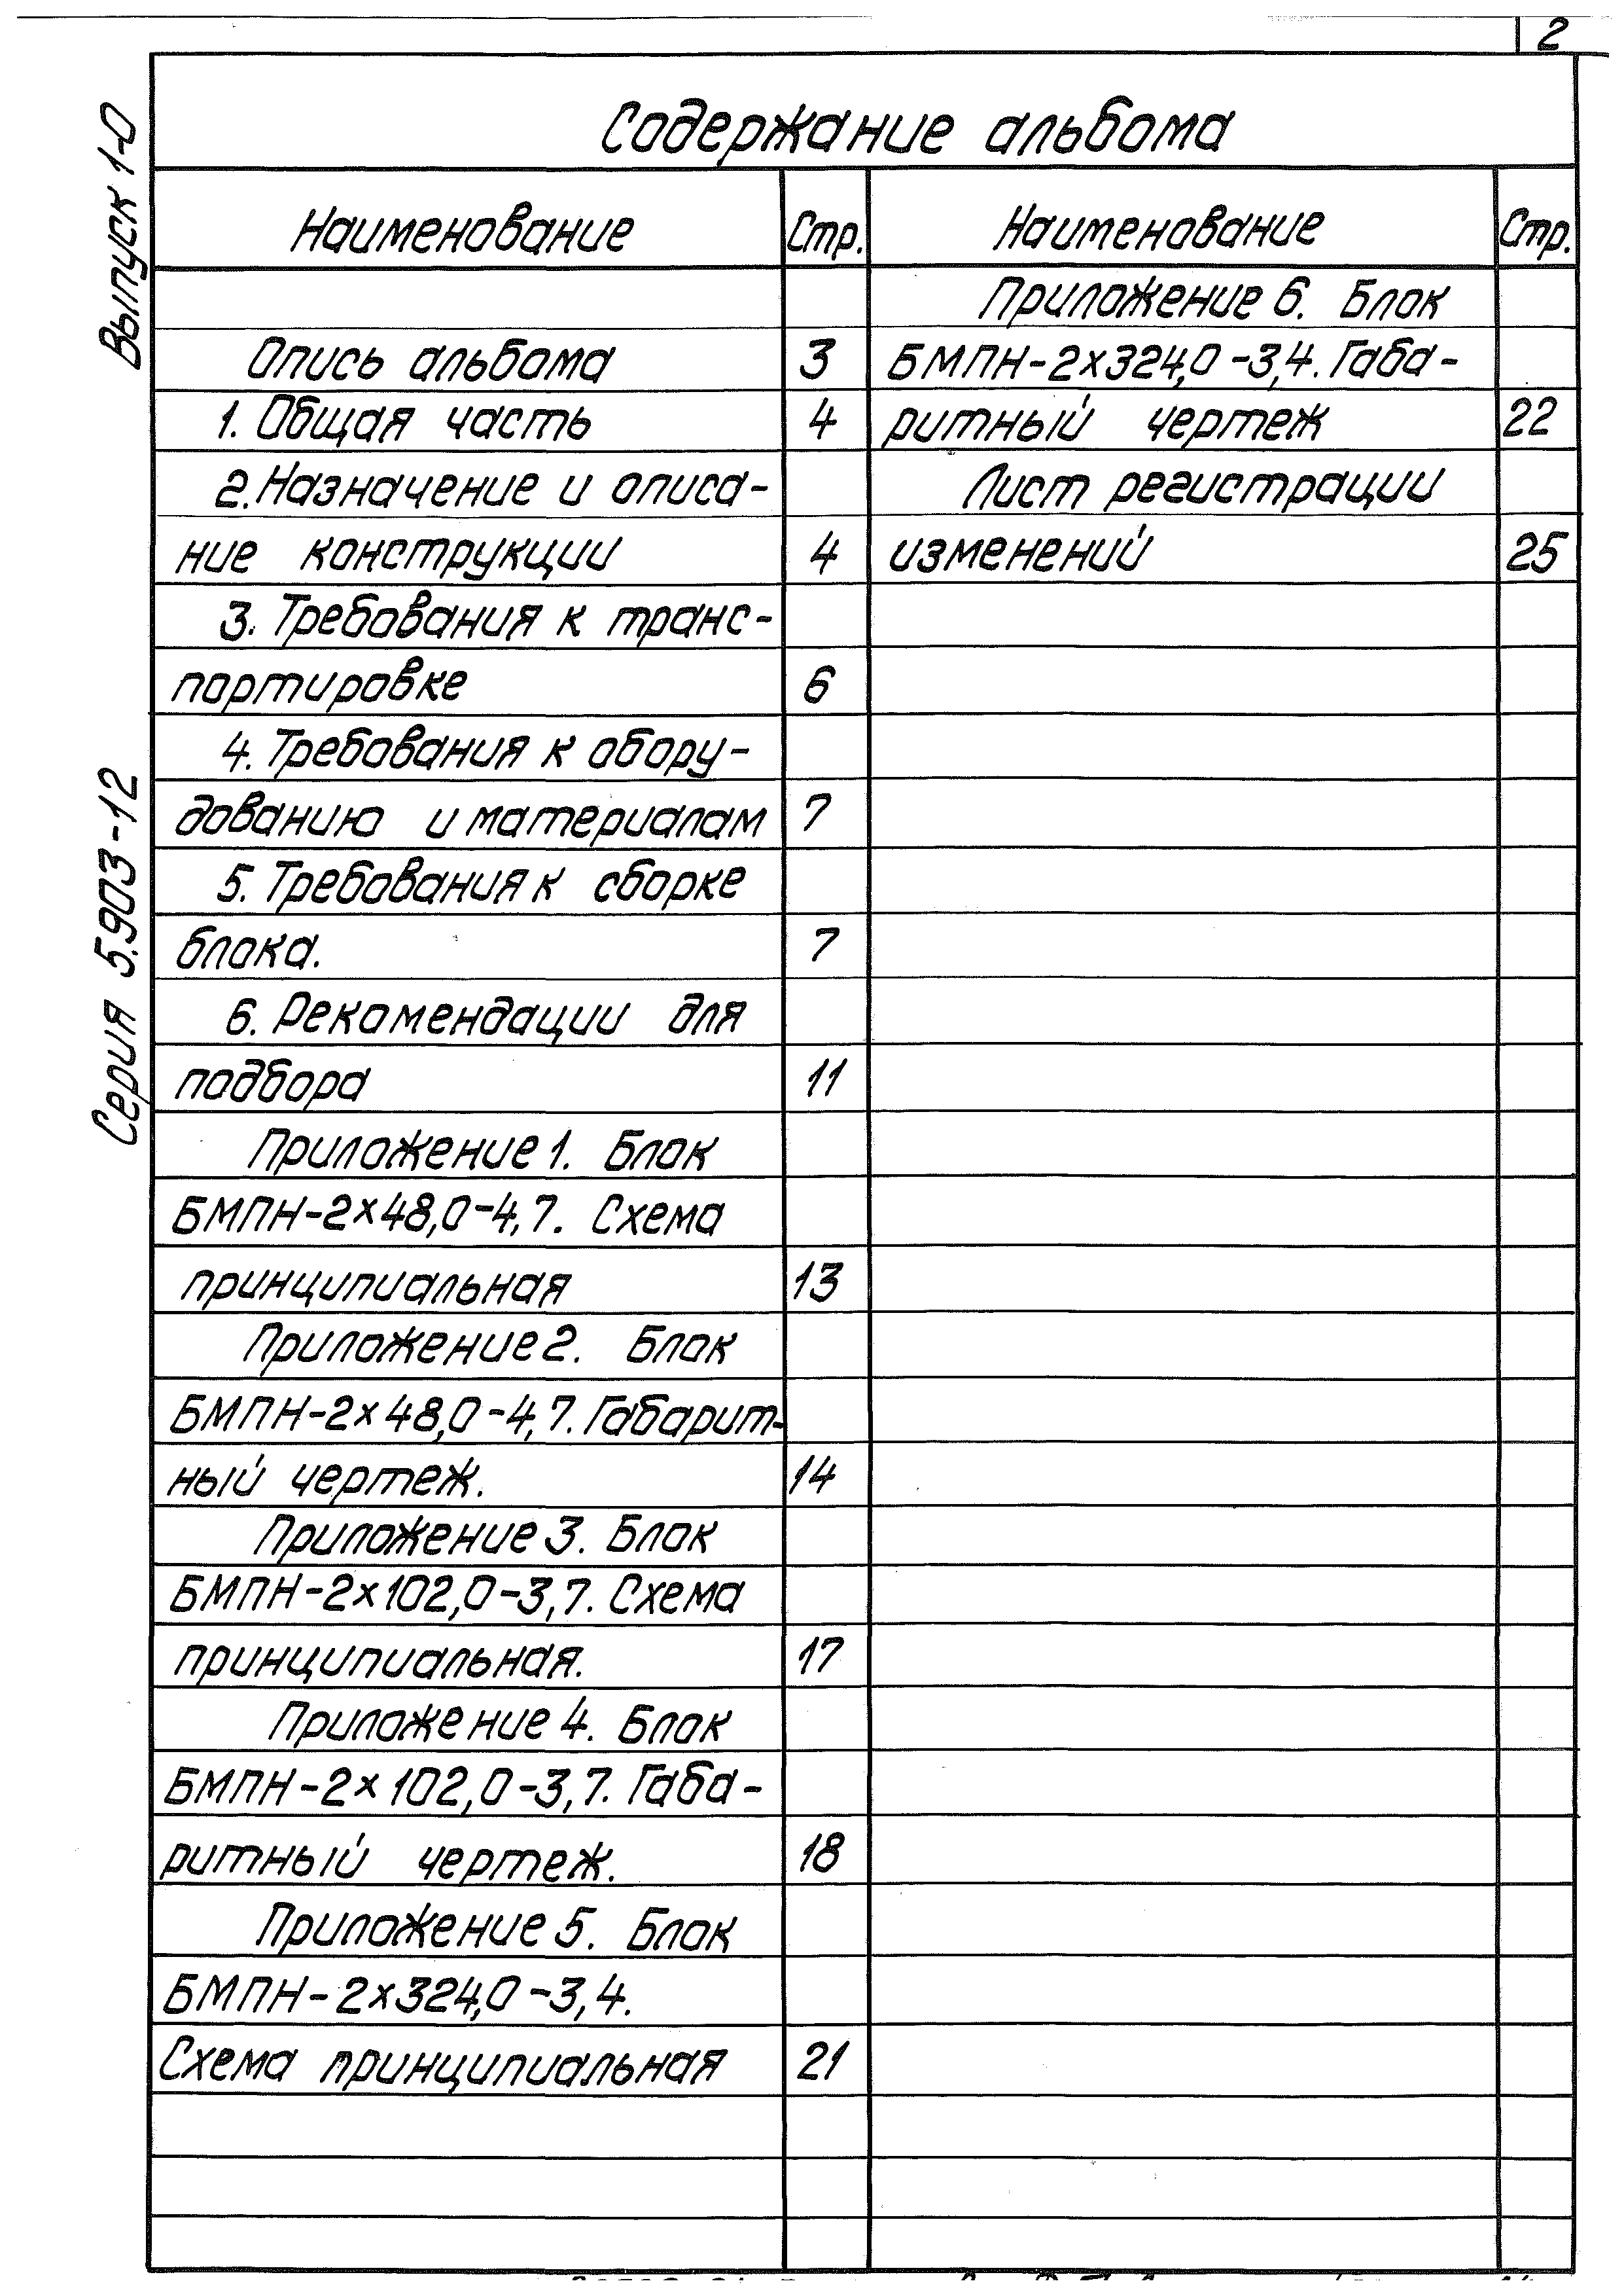 2
Выпуск 1-0
Серия 5.903-12
Содержание альбома
Наименование Стр.
Опись альбома 3
1. Общая часть 4
2. Назначение и описа-
ние конструкции 4
3. Требования к транс-
портировке 6
4. Требования к обору-
дованию и материалам 7
5. Требования к сборке
блока. 7
6. Рекомендации для
подбора 11
Приложение 1. Блок
БМПН-2×48,0-4,7. Схема
принципиальная 13
Приложение 2. Блок
БМПН-2×48,0-4,7. Габарит-
ный чертеж. 14
Приложение 3. Блок
БМПН-2×102,0-3,7. Схема
принципиальная. 17
Приложение 4. Блок
БМПН-2×102,0-3,7. Габа-
ритный чертеж. 18
Приложение 5. Блок
БМПН-2×324,0-3,4.
Схема принципиальная 21
Наименование Стр.
Приложение 6. Блок
БМПН-2×324,0-3,4. Габа-
ритный чертеж 22
Лист регистрации
изменений 25